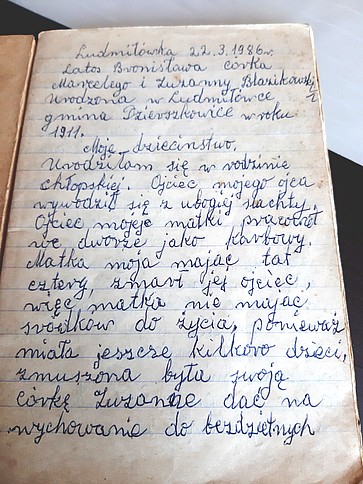 Ludmiłówka 22.3.1986r.
Latos Bronisława córka
Marcelego i Zuzanny
Urodzona w Ludmiłówce
gmina Dzierzkowice w roku
1911.
Moje dzieciństwo.
Urodziłam się w rodzinie
chłopskiej. Ojciec mojego ojca
wywodził się z ubogiej szlachty.
Ojciec mojej matki pracował
we dworze jako karbowy.
Matka moja mając lat
cztery, zmarł jej ojciec,
więc matka nie mając
środków do życia, ponieważ
miała jeszcze kilkoro dzieci,
zmuszona była swoją
córkę Zuzannę dać na
wychowanie do bezdzietnych